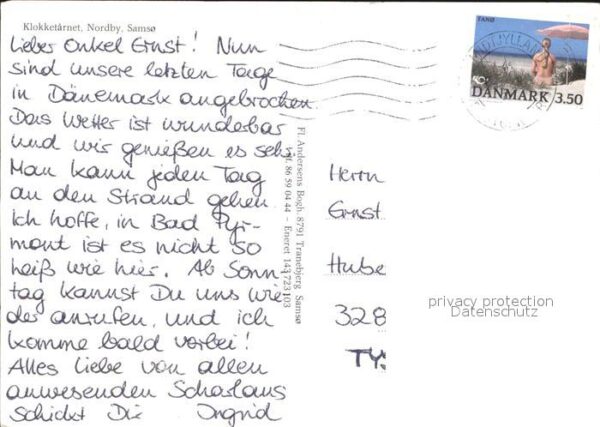 Klokketårnet, Nordby, Samsø
Lieber Onkel Ernst! Nun
sind unsere letzten Tage
in Dänemark angebrochen.
Das Wetter ist wunderbar
und wir genießen es sehr.
Man kann jeden Tag
an den Strand gehen.
Ich hoffe, in Bad Pyr-
mont ist es nicht so
heiß wie hier. Ab Sonn-
tag kannst Du uns wie
der anrufen, und ich
komme bald vorbei!
Alles Liebe von allen
anwesenden
schickt Dir Ingrid
Fl. Andersens Bogh. 8791 Tranebjerg Samsø
Tlf. 86 59 04 44 – Eneret 143 723 103
TANØ
DANMARK 3.50
Herrn
Ernst
Hube
328
privacy protection
Datenschutz